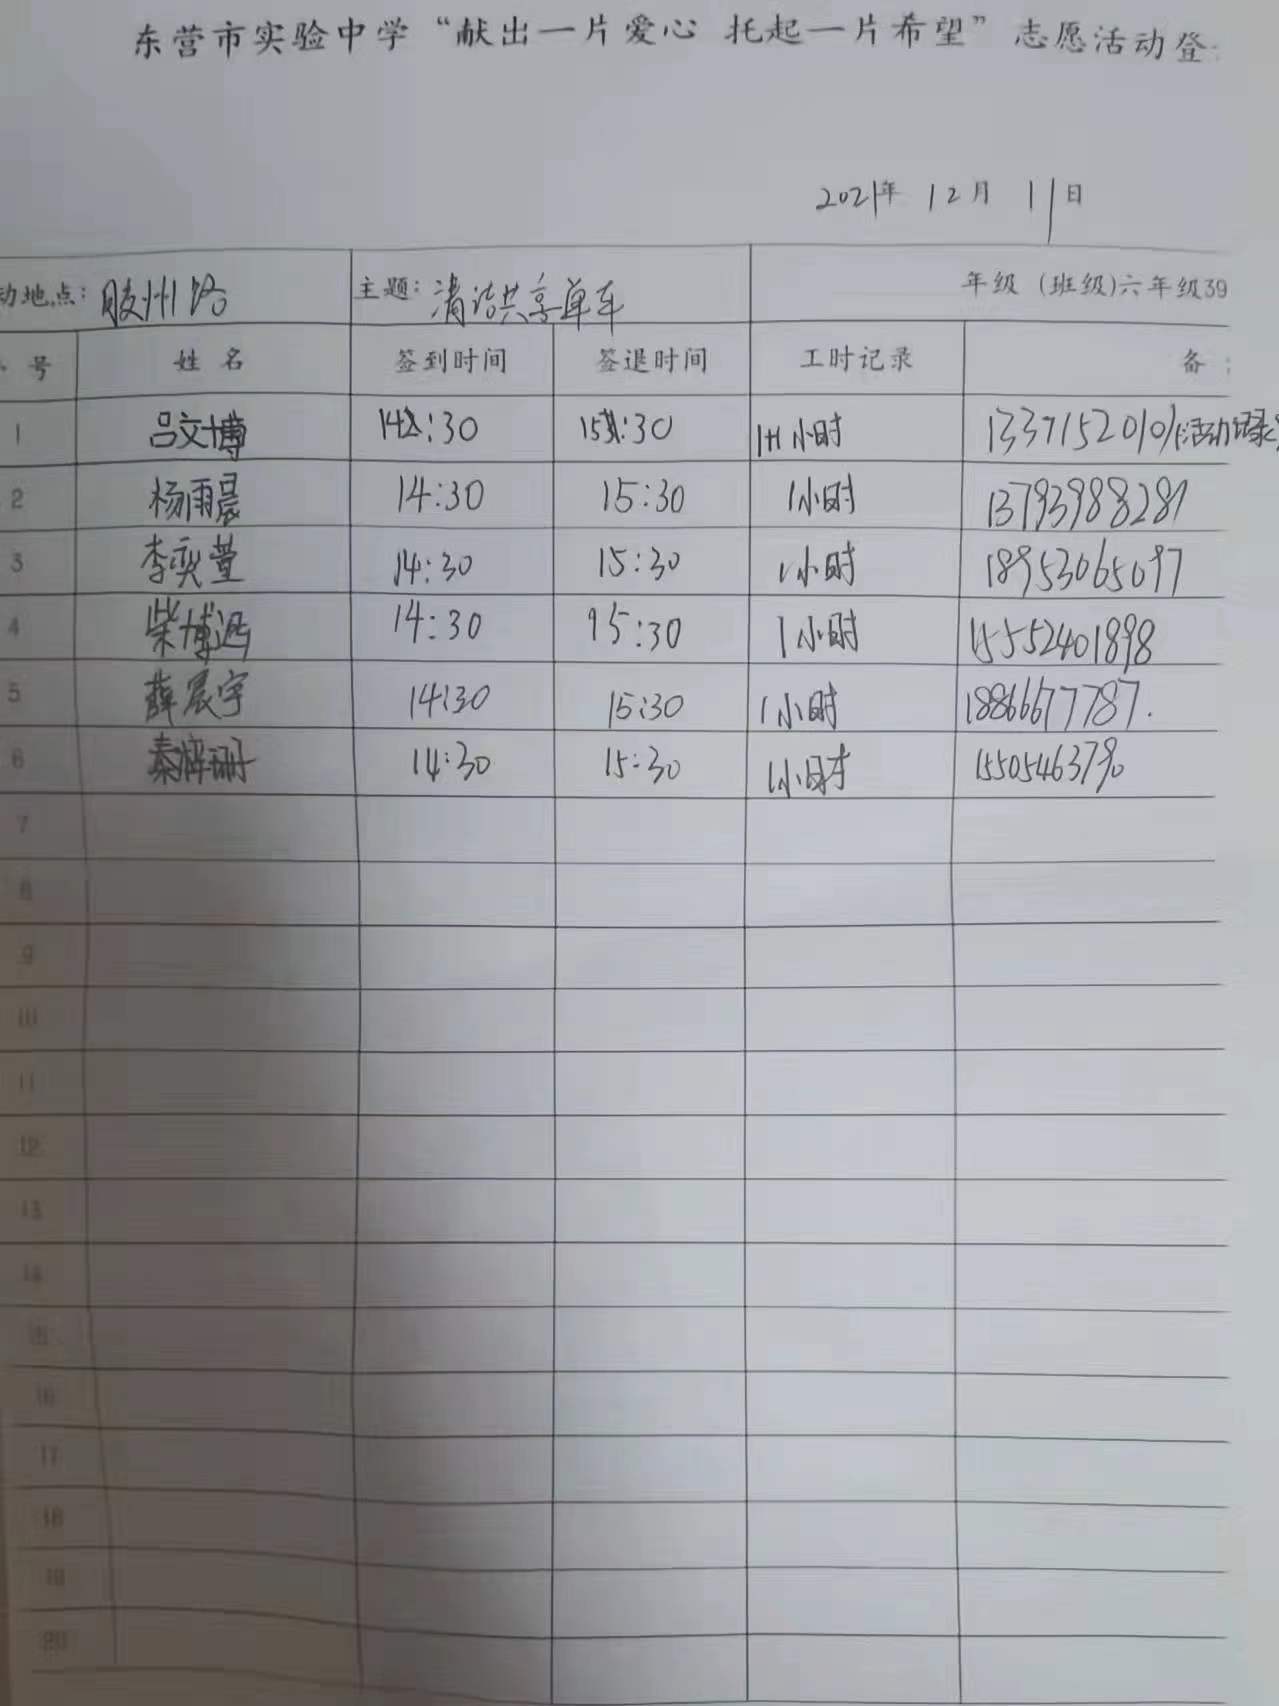 东营市实验中学“献出一片爱心 托起一片希望”志愿活动登
2021年 12月 11日
动地点：胶州路 主题：清洁共享单车 年级（班级)六年级39
号 姓名 签到时间 签退时间 工时记录 备
1 吕文博 14:30 15:30 1小时 13371520101(活动记录
2 杨雨晨 14:30 15:30 1小时 13793988281
3 李奕萱 14:30 15:30 1小时 18953065097
4 柴博远 14:30 15:30 1小时 15552401898
5 薛宸宇 14:30 15:30 1小时 18866677787.
6 秦梓珊 14:30 15:30 1小时 15505463790
7
8
9
10
11
12
13
14
15
16
17
18
19
20